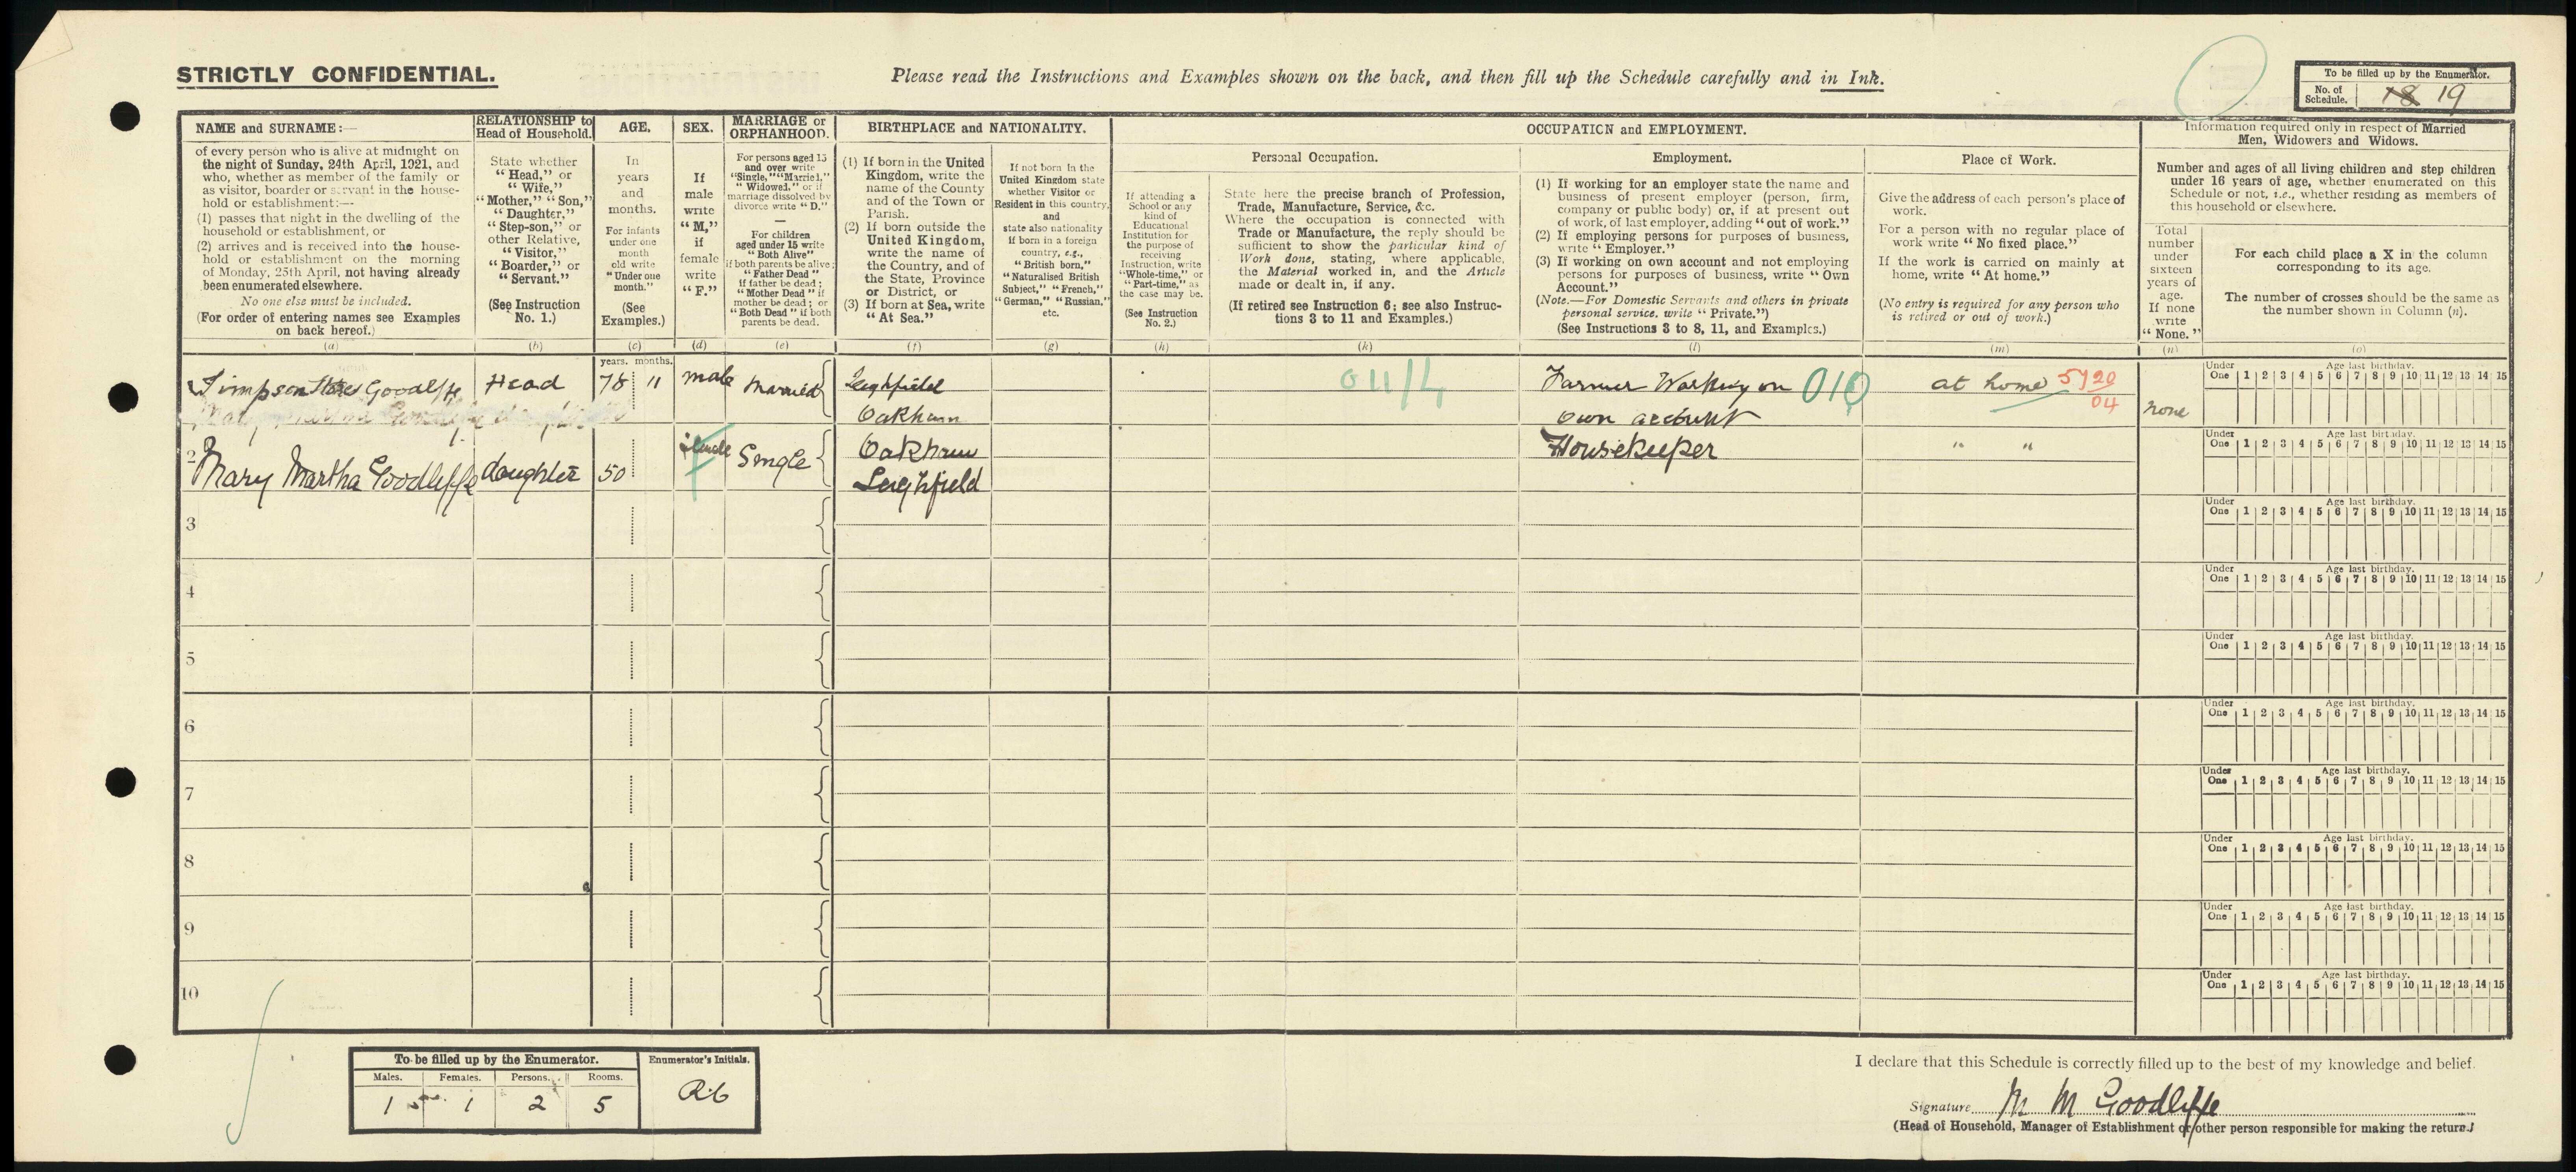 STRICTLY CONFIDENTIAL.
Please read the Instructions and Examples shown on the back, and then fill up the Schedule carefully and in Ink.
To be filled up by the Enumerator.
No. of Schedule. 18 19
NAME and SURNAME:—
of every person who is alive at midnight on
the night of Sunday, 24th April, 1921, and
who, whether as member of the family or
as visitor, boarder or servant in the house-
hold or establishment:—
(1) passes that night in the dwelling of the
household or establishment, or
(2) arrives and is received into the house-
hold or establishment on the morning
of Monday, 25th April, not having already
been enumerated elsewhere.
No one else must be included.
(For order of entering names see Examples
on back hereof.)
(a)
RELATIONSHIP to
Head of Household.
State whether
"Head," or
"Wife,"
"Mother," "Son,"
"Daughter,"
"Step-son," or
other Relative,
"Visitor,"
"Boarder," or
"Servant."
(See Instruction
No. 1.)
(b)
AGE.
In
years
and
months.
For infants
under one
month
old write
"Under one
month."
(See
Examples.)
(c)
SEX.
If
male
write
"M,"
if
female
write
"F."
(d)
MARRIAGE or
ORPHANHOOD.
For persons aged 15
and over write
"Single," "Married,"
"Widowed," or if
marriage dissolved by
divorce write "D."
—
For children
aged under 15 write
"Both Alive"
if both parents be alive;
"Father Dead"
if father be dead;
"Mother Dead" if
mother be dead; or
"Both Dead" if both
parents be dead.
(e)
BIRTHPLACE and NATIONALITY.
(1) If born in the United
Kingdom, write the
name of the County
and of the Town or
Parish.
(2) If born outside the
United Kingdom,
write the name of
the Country, and of
the State, Province
or District, or
(3) If born at Sea, write
"At Sea."
(f)
If not born in the
United Kingdom state
whether Visitor or
Resident in this country,
and
state also nationality
if born in a foreign
country, e.g.,
"British born,"
"Naturalised British
Subject," "French,"
"German," "Russian,"
etc.
(g)
OCCUPATION and EMPLOYMENT.
Personal Occupation.
If attending a
School or any
kind of
Educational
Institution for
the purpose of
receiving
Instruction, write
"Whole-time," or
"Part-time," as
the case may be.
(See Instruction
No. 2.)
(h)
State here the precise branch of Profession,
Trade, Manufacture, Service, &c.
Where the occupation is connected with
Trade or Manufacture, the reply should be
sufficient to show the particular kind of
Work done, stating, where applicable,
the Material worked in, and the Article
made or dealt in, if any.
(If retired see Instruction 6; see also Instruc-
tions 3 to 11 and Examples.)
(k)
Employment.
(1) If working for an employer state the name and
business of present employer (person, firm,
company or public body) or, if at present out
of work, of last employer, adding "out of work."
(2) If employing persons for purposes of business,
write "Employer."
(3) If working on own account and not employing
persons for purposes of business, write "Own
Account."
(Note.—For Domestic Servants and others in private
personal service, write "Private.")
(See Instructions 3 to 8, 11, and Examples.)
(l)
Place of Work.
Give the address of each person's place of
work.
For a person with no regular place of
work write "No fixed place."
If the work is carried on mainly at
home, write "At home."
(No entry is required for any person who
is retired or out of work.)
(m)
Information required only in respect of Married
Men, Widowers and Widows.
Number and ages of all living children and step children
under 16 years of age, whether enumerated on this
Schedule or not, i.e., whether residing as members of
this household or elsewhere.
Total
number
under
sixteen
years of
age.
If none
write
"None."
(n)
For each child place a X in the column
corresponding to its age.
The number of crosses should be the same as
the number shown in Column (n).
(o)
years. months.
Head 78 11 male Married Leighfield
Oakham
011/4
Farmer Working on 010
own account
at home 5720
04
none
Under One Age last birthday. 1 2 3 4 5 6 7 8 9 10 11 12 13 14 15
2 Mary Martha Goodliffe daughter 50 F Single Oakham
Leighfield
Housekeeper " "
Under One Age last birthday. 1 2 3 4 5 6 7 8 9 10 11 12 13 14 15
3
Under One Age last birthday. 1 2 3 4 5 6 7 8 9 10 11 12 13 14 15
4
Under One Age last birthday. 1 2 3 4 5 6 7 8 9 10 11 12 13 14 15
5
Under One Age last birthday. 1 2 3 4 5 6 7 8 9 10 11 12 13 14 15
6
Under One Age last birthday. 1 2 3 4 5 6 7 8 9 10 11 12 13 14 15
7
Under One Age last birthday. 1 2 3 4 5 6 7 8 9 10 11 12 13 14 15
8
Under One Age last birthday. 1 2 3 4 5 6 7 8 9 10 11 12 13 14 15
9
Under One Age last birthday. 1 2 3 4 5 6 7 8 9 10 11 12 13 14 15
10
Under One Age last birthday. 1 2 3 4 5 6 7 8 9 10 11 12 13 14 15
To be filled up by the Enumerator.
Males. Females. Persons. Rooms.
1 1 2 5
Enumerator's Initials.
I declare that this Schedule is correctly filled up to the best of my knowledge and belief.
Signature M M Goodliffe
(Head of Household, Manager of Establishment or other person responsible for making the return.)